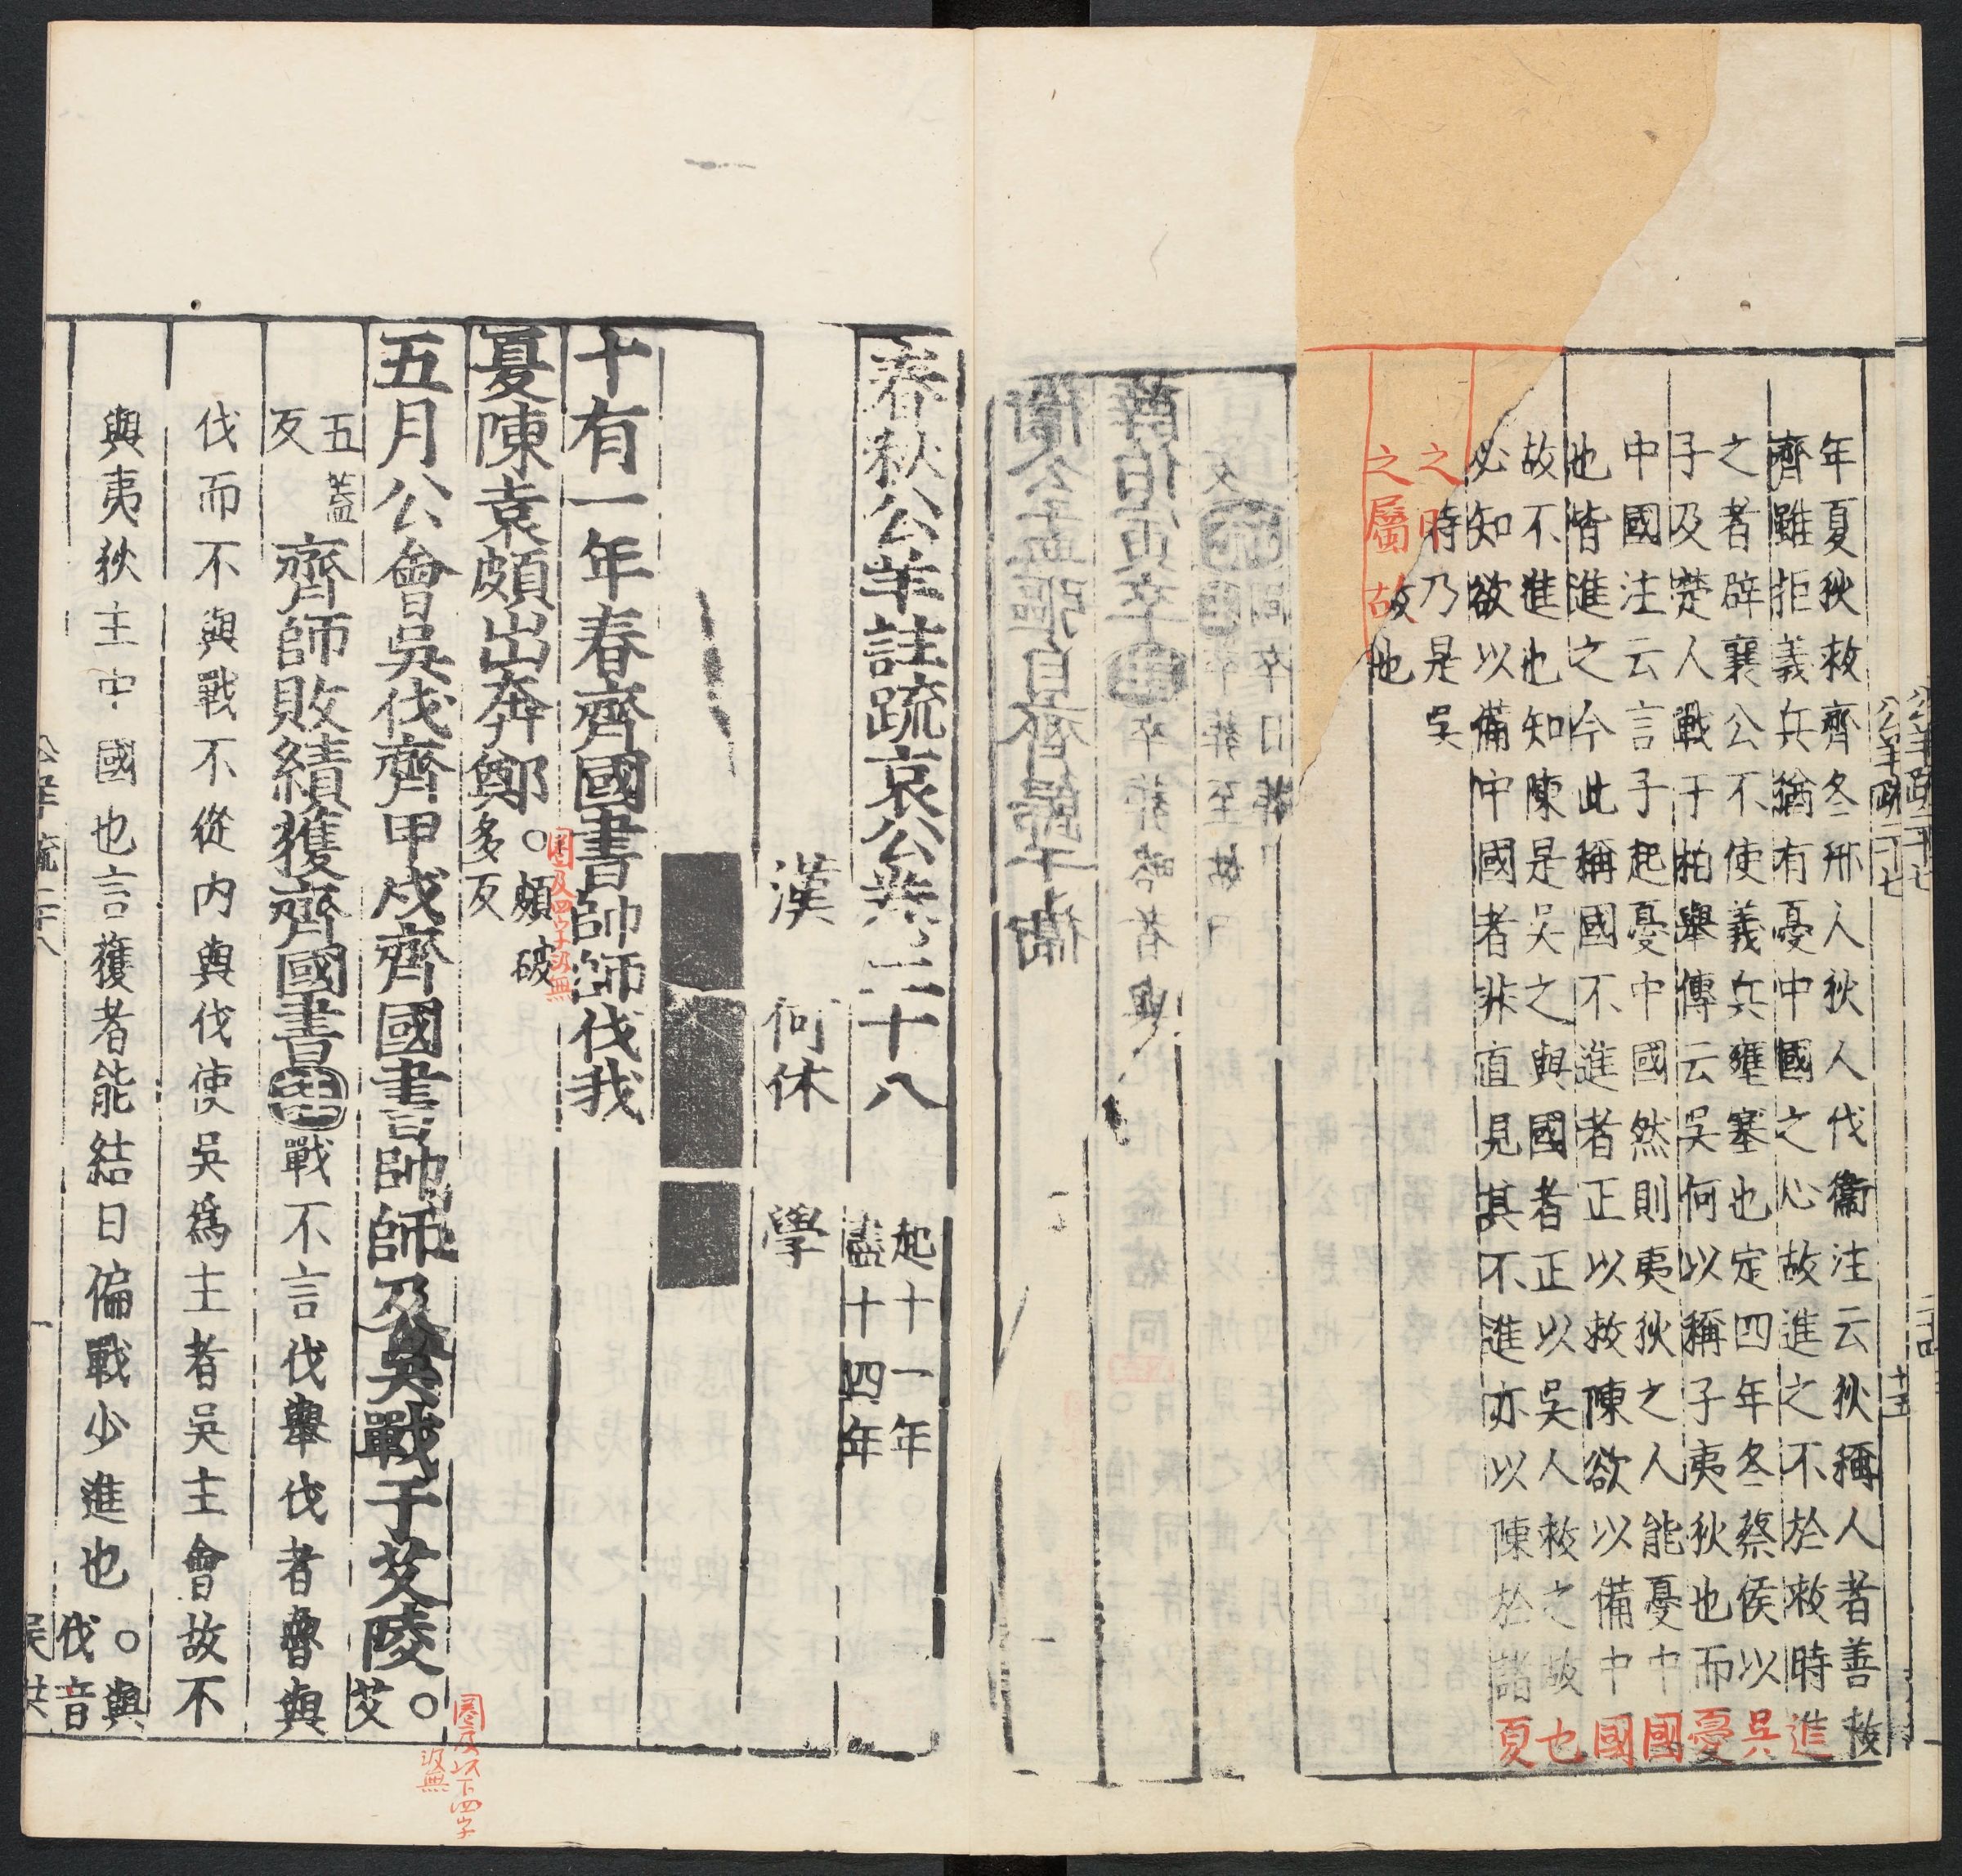 年夏狄救齊冬邢人狄人伐衞注云狄稱人者善救
齊雖拒義兵猶有憂中國之心故進之不於救時進
之者辟襄公不使義兵壅塞也定四年冬蔡侯以吳
子及楚人戰于柏舉傳云吳何以稱子夷狄也而憂
中國注云言子起憂中國然則夷狄之人能憂中國
也皆進之今此稱國不進者正以救陳欲以備中國
故不進也知陳是吳之與國者正以吳人救之故也
必知欲以備中國者非直見其不進亦以陳於諸夏
之時乃是吳
之屬故也
春秋公羊註疏哀公卷二十八
起十一年
盡十四年
漢 何休 學
十有一年春齊國書帥師伐我
夏陳袁頗出奔鄭
○頗破
多反
圈及四字汲無
五月公會吳伐齊甲戌齊國書帥師及吳戰于艾陵
○
艾
圈及以下四字
汲無
五蓋
反
齊師敗績獲齊國書
註
戰不言伐舉伐者魯與
伐而不與戰不從內與伐使吳爲主者吳主會故不
與夷狄主中國也言獲者能結日偏戰少進也
○與
伐音